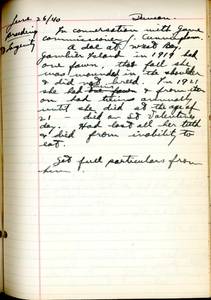 June 26/40 Duncan.
Breeding
& longevity
In conversation with game
commissioner J. Cunningham
A doe at West Bay,
Gambier Island in 1919 had
one fawn, that fall she
was wounded in the shoulder
& did not breed. In 1921
she had one fawn & from then
on had twins annually
until she died at the age of
21 – died on St Valentines
day. Had lost all her teeth
& died from inability to
eat.
Get full particulars from
him.